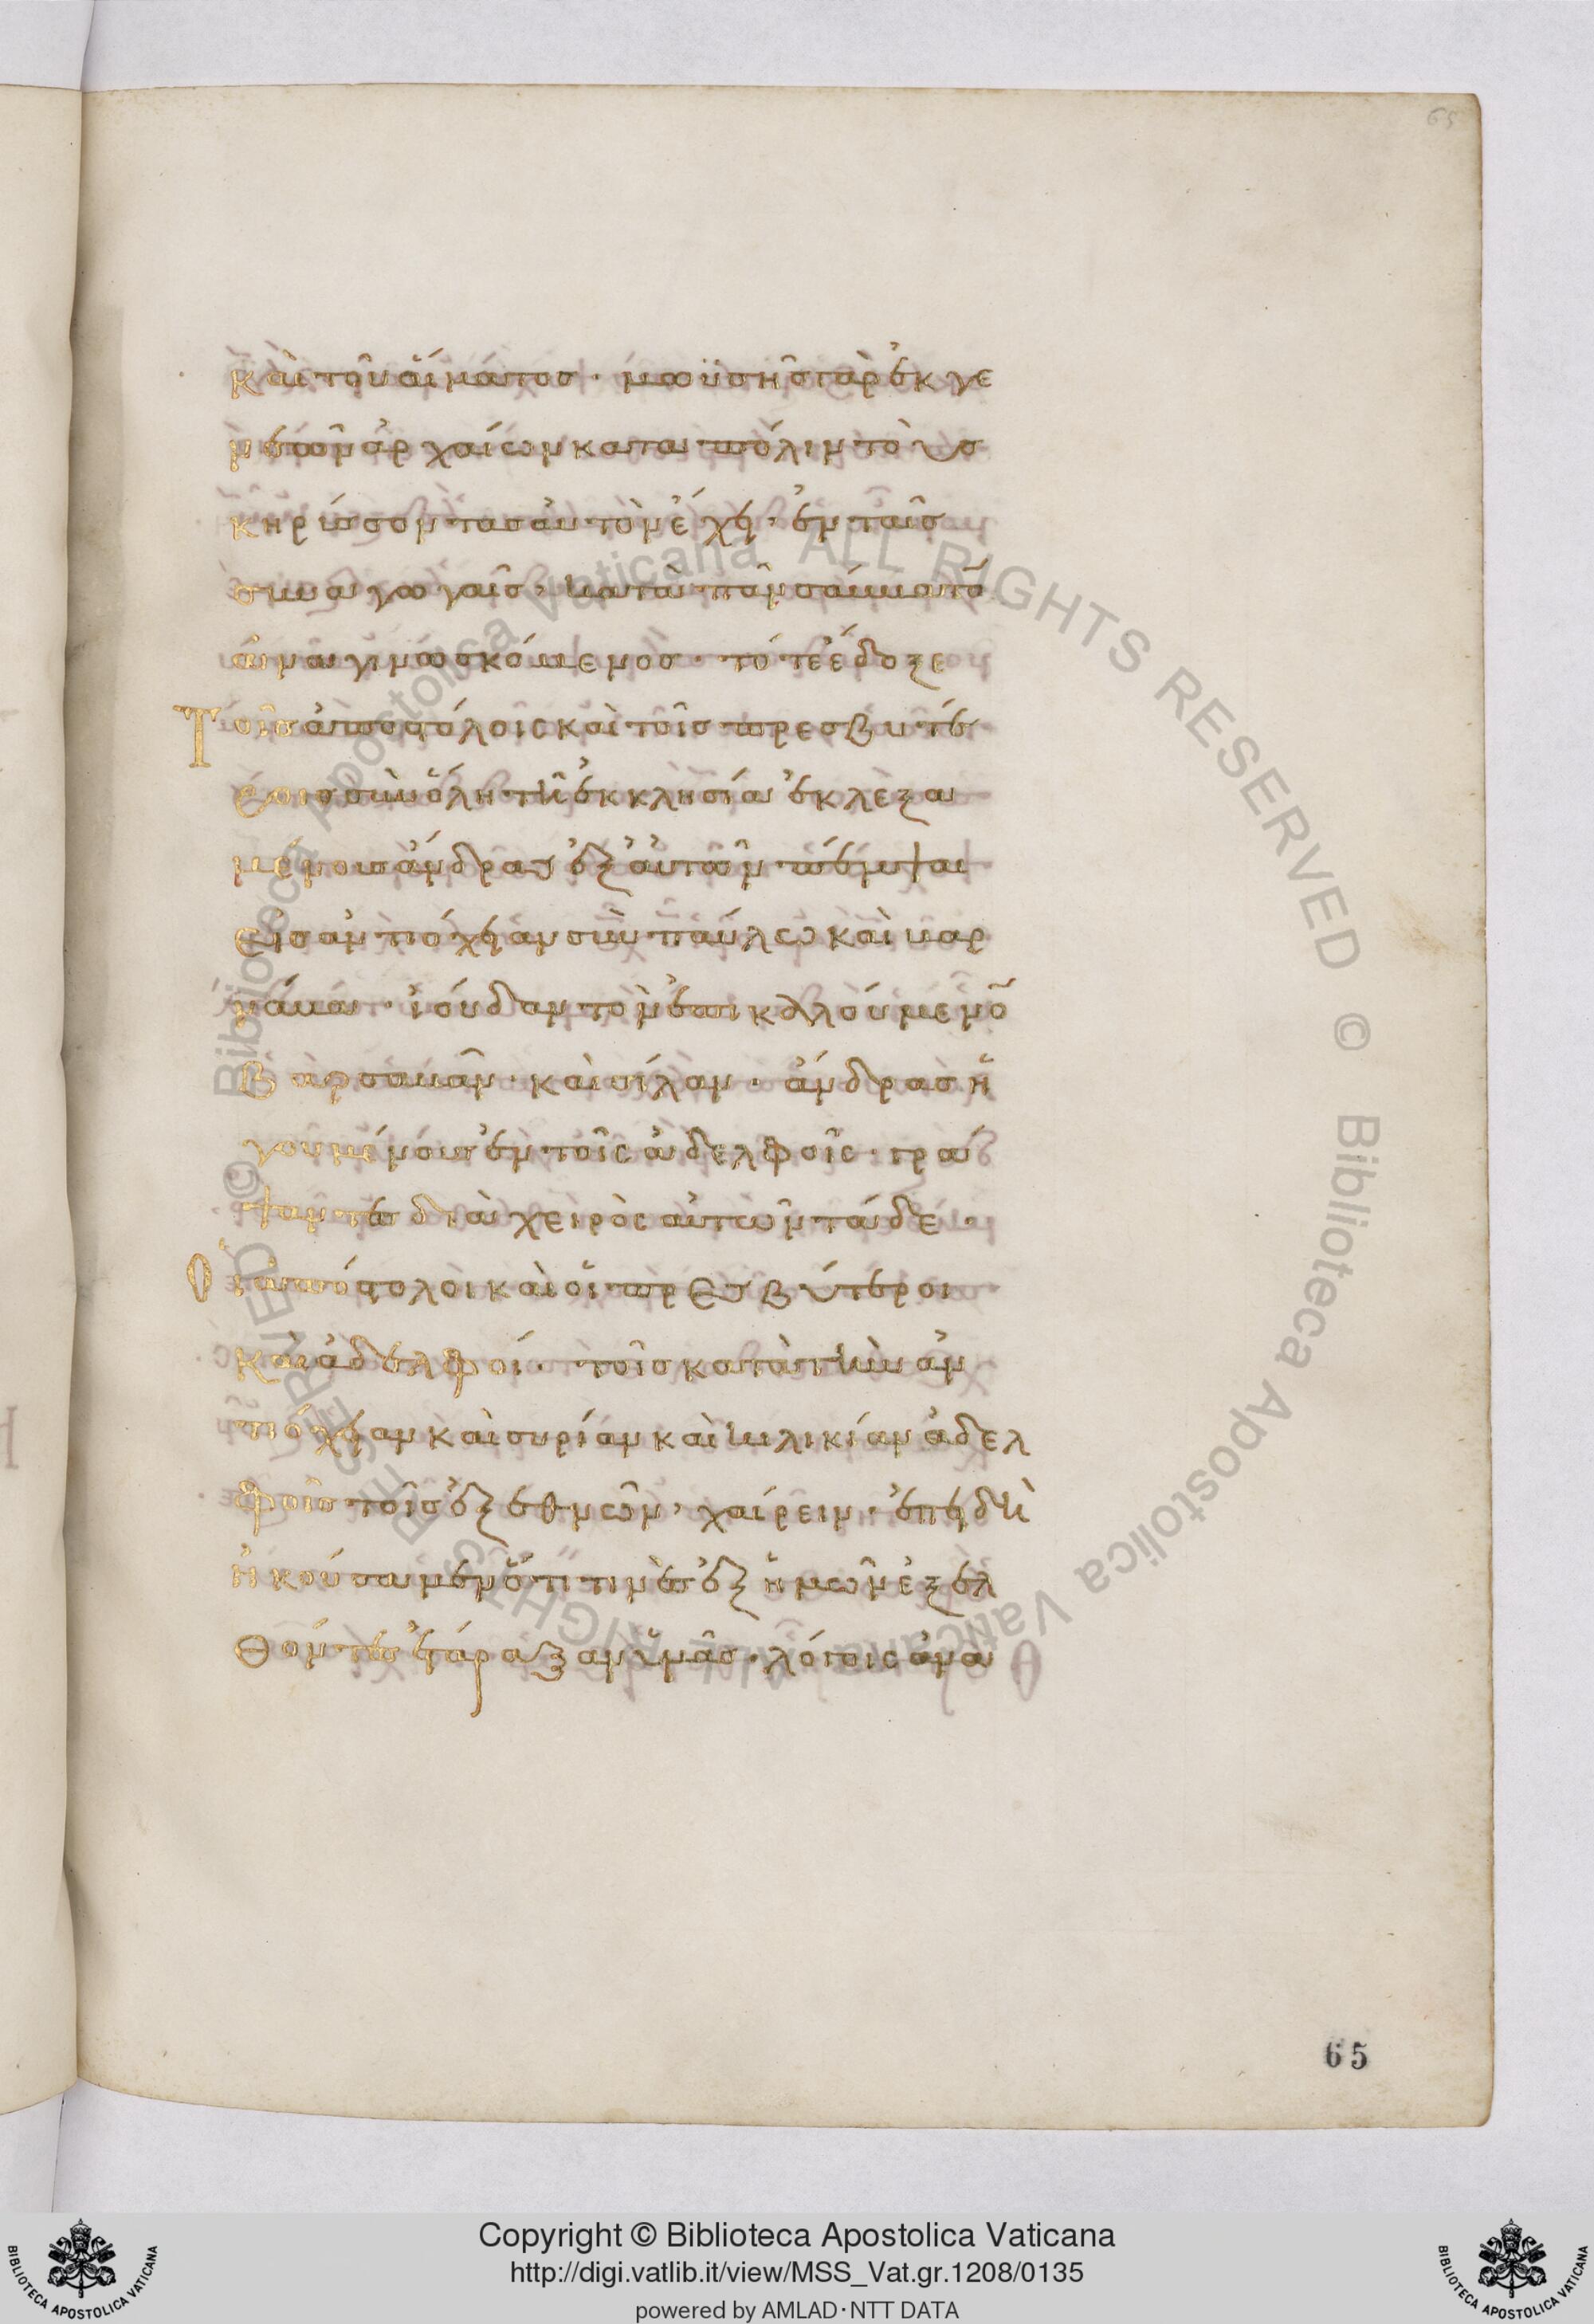 65
καὶ τοῦ αἵματος· μωϋσῆς γὰρ ἐκ γε
νεῶν ἀρχαίων κατα πόλιν τοὺσ
κηρύσσοντασ αὐτὸν ἔχει· ἐν ταῖσ
συναγωγαῖσ· κατὰ πᾶν σάββατο̅
ἀναγινωσκόμενοσ· τότε ἔδοξε
Τοῖσ ἀποστόλοις καὶ τοῖσ πρεσβυτέ
ροισ σὺν ὅλη τῆ ἐκκλησία ἐκλεξα
μένουσ ἄνδρας ἐξ αὐτῶν πέμψαι
εἰσ ἀντιόχειαν σὺν παύλω καὶ βαρ
νάβα· ἰούδαν τὸν ἐπικαλούμενο̅
βαρσαβᾶν· καὶ σίλαν· ἄνδρασ ἡ
γουμένουσ ἐν τοῖς ἀδελφοῖς· γρά
ψαντεσ διὰ χειρὸς αὐτῶν τάδε·
Οἱ ἀπόστολοι καὶ οἱ πρεσβύτεροι
καὶ ἀδελφοί· τοῖσ κατὰ τὴν ἀν
τιόχειαν καὶ συρίαν καὶ κιλικίαν ἀδελ
φοῖσ τοῖσ ἐξ ἐθνῶν· χαίρειν· ἐπειδὴ
ἠκούσαμεν ὅτι τινὲσ ἐξ ἡμῶν ἐξελ
θόντεσ ἐτάραξαν ὑμᾶσ· λόγοις ἀνα
65
Biblioteca Apostolica Vaticana ALL RIGHTS RESERVED © Biblioteca Apostolica Vaticana ALL RIGHTS RESERVED ©
BIBLIOTECA APOSTOLICA VATICANA
Copyright © Biblioteca Apostolica Vaticana
http://digi.vatlib.it/view/MSS_Vat.gr.1208/0135
powered by AMLAD·NTT DATA
BIBLIOTECA APOSTOLICA VATICANA